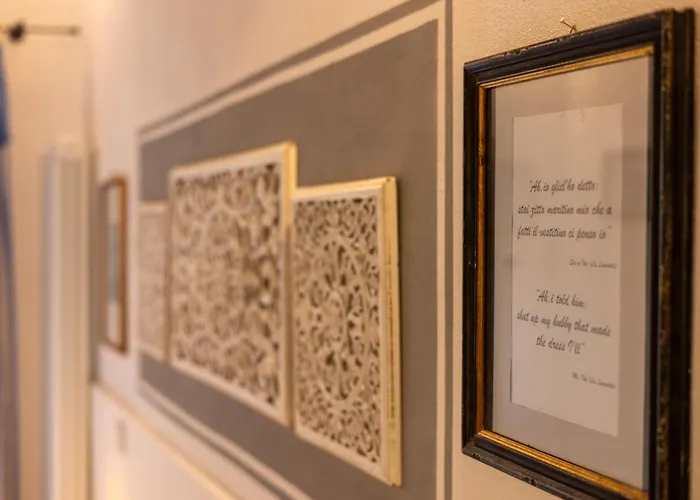 "Ah, io gliel'ho detto:
stai zitto maritino mio che a
fatti il vestitino ci penso io"
"Ah, i told him:
shut up my hubby that made
the dress I'll"